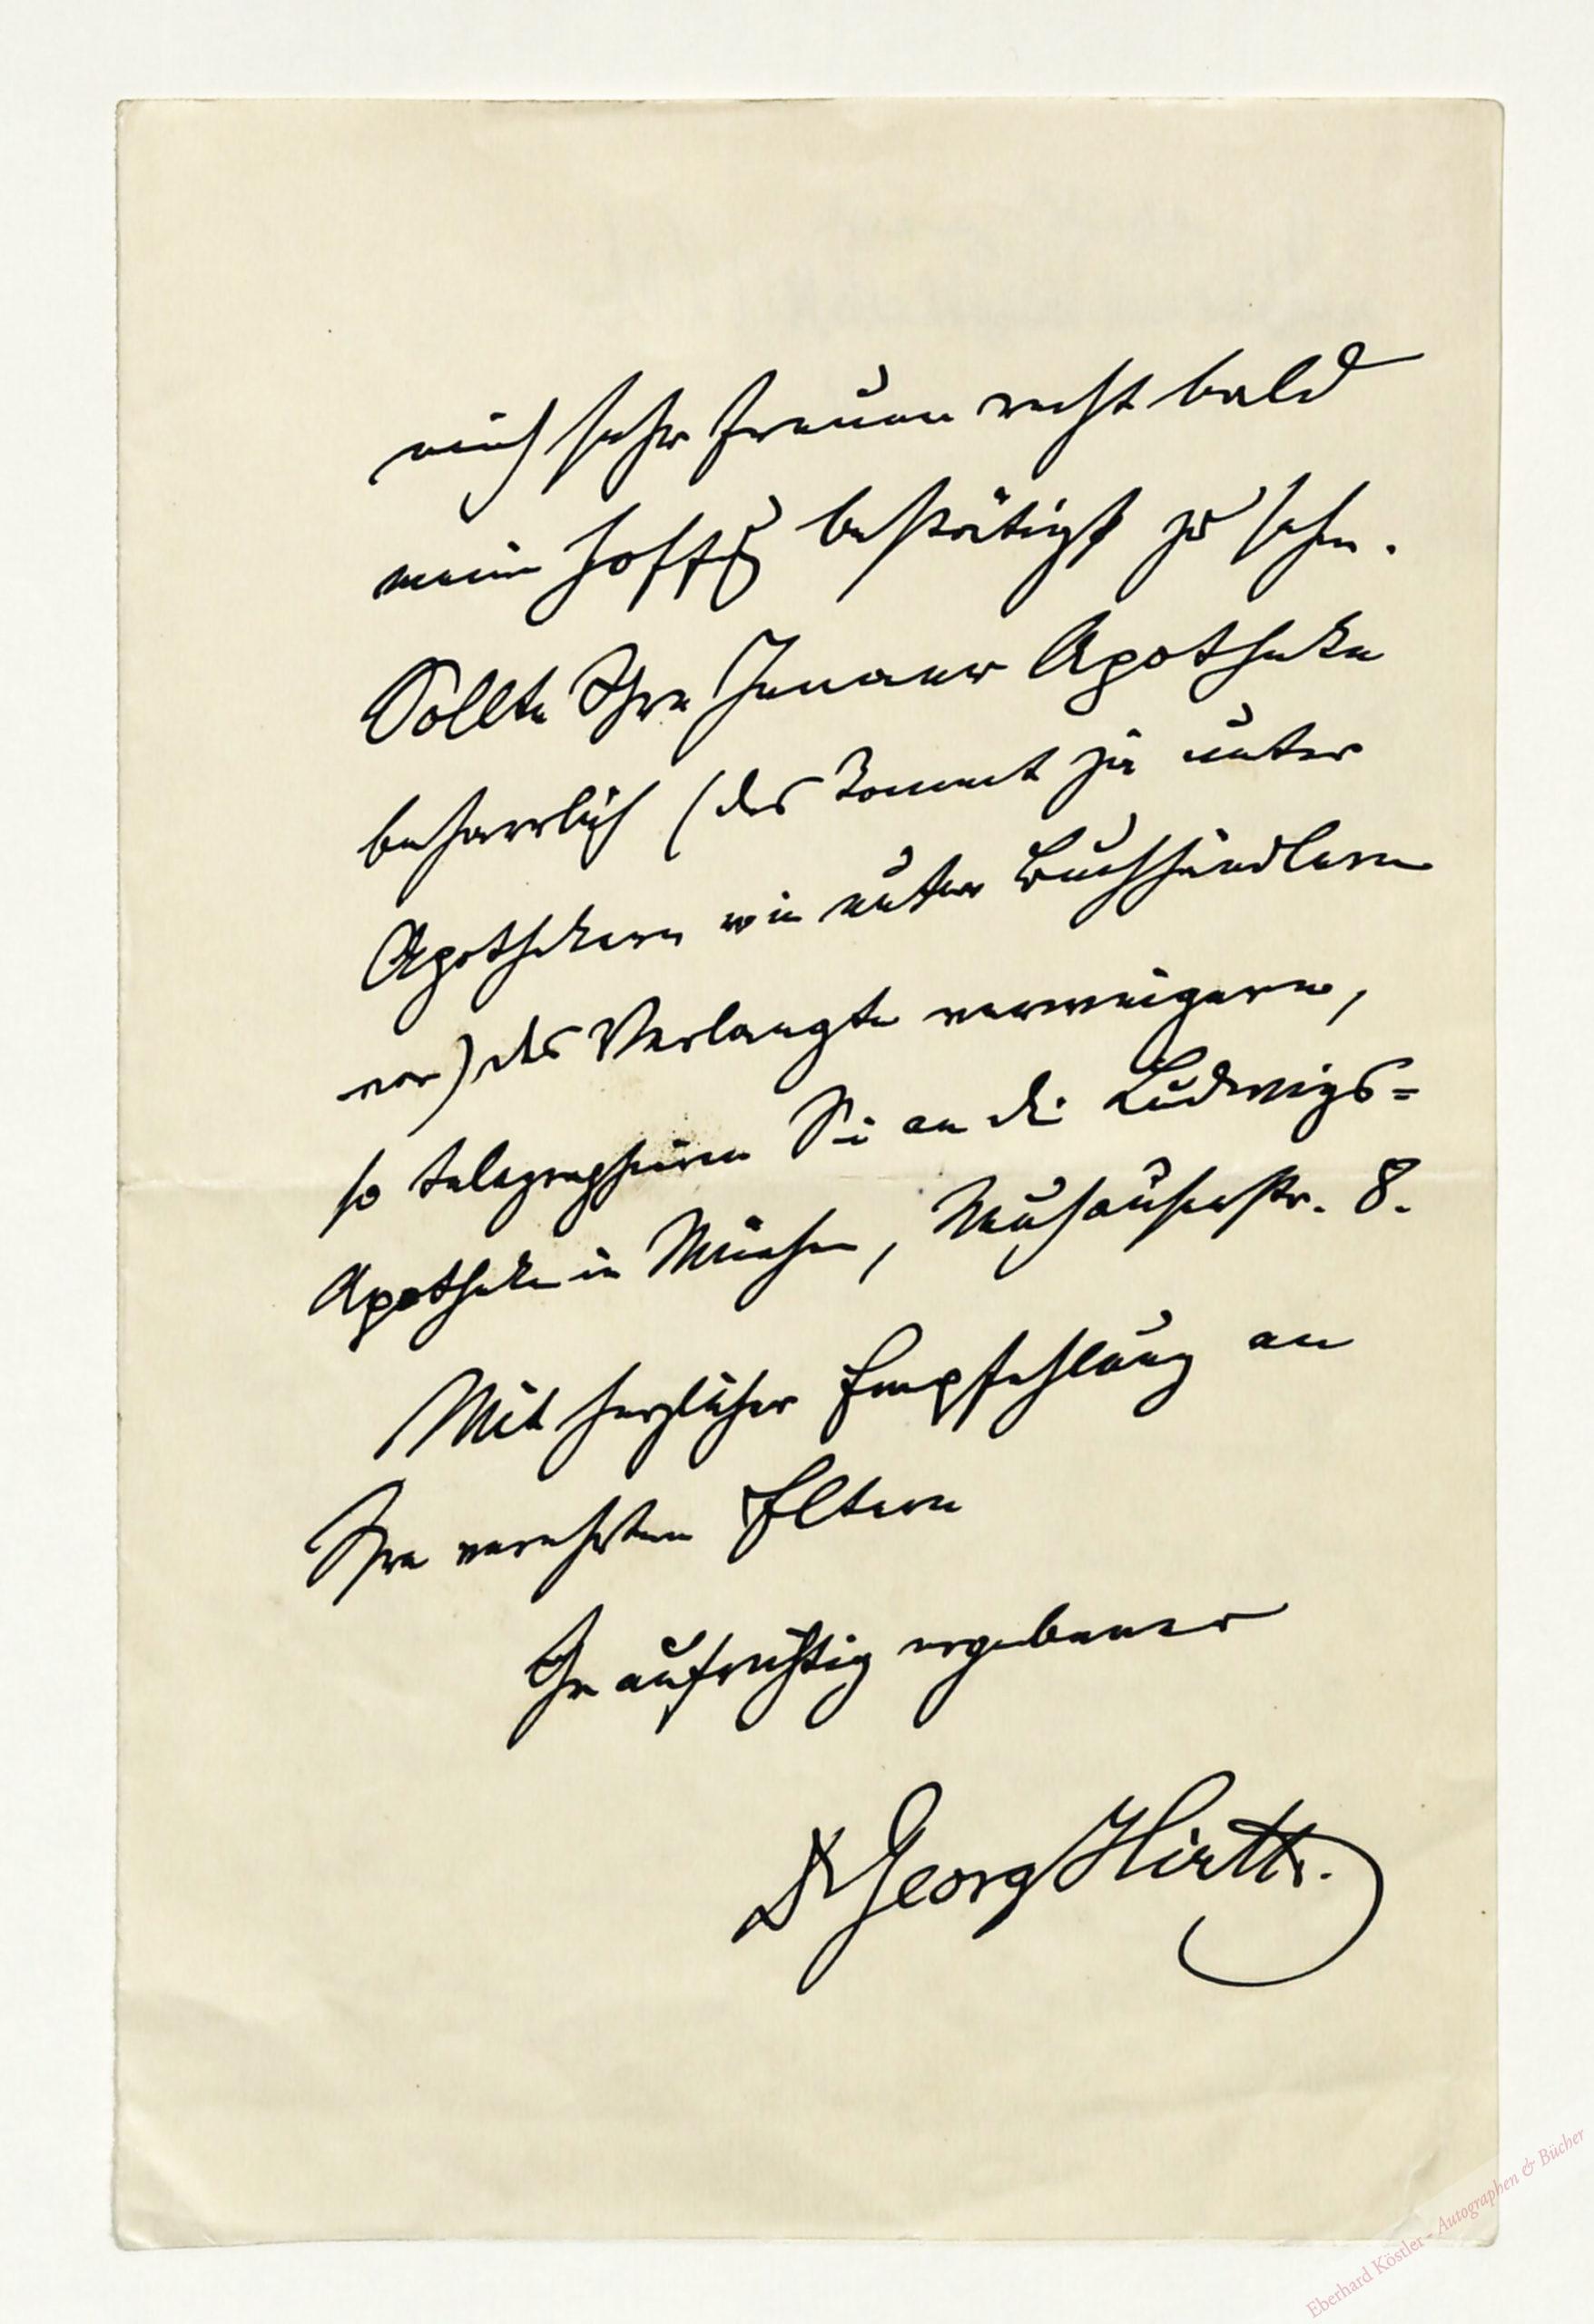 mich sehr freuen recht bald
meine Hoffg bestätigt zu sehn.
Sollte Ihre Jenauer Apotheke
beharrlich (das kommt ja unter
Apothekern wie unter Buchhändlern
vor) das Verlangte verweigern,
so telegraphieren Sie an die Ludwigs=
Apotheke in München, Neuhauserstr. 8.
Mit herzlicher Empfehlung an
Ihre verehrten Eltern
Ihr aufrichtig ergebener
Dr Georg Hirth.
Eberhard Köstler - Autographen & Bücher